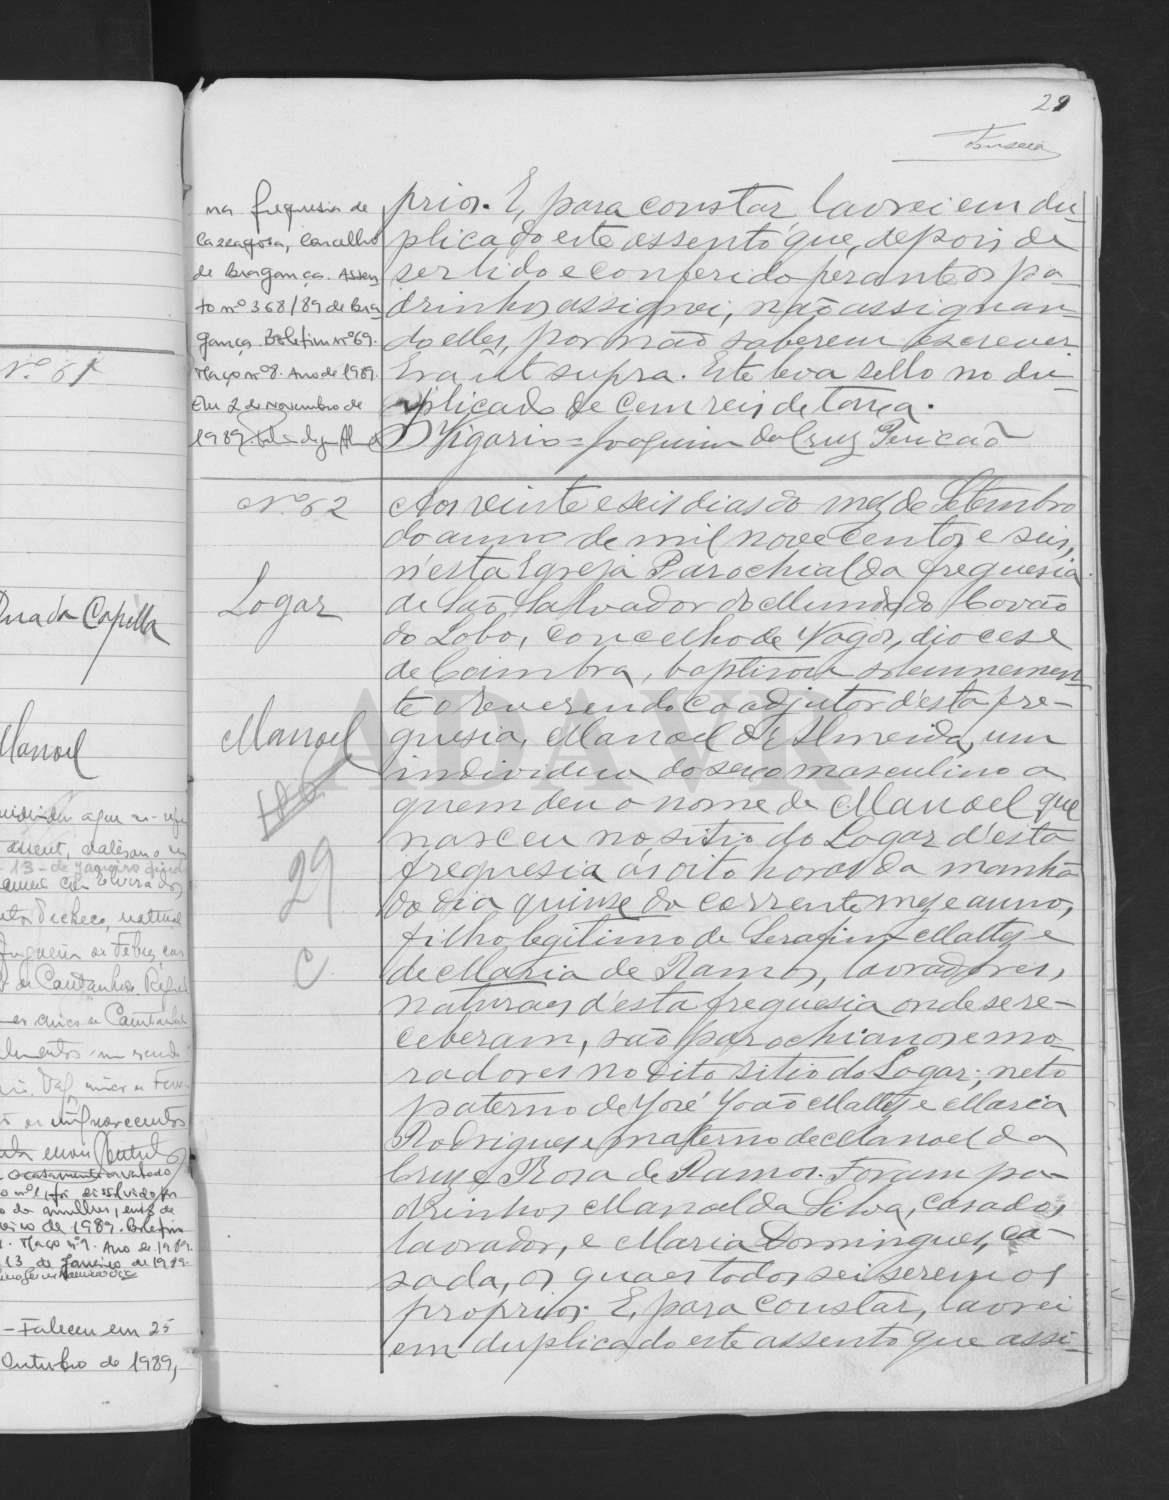 29
Fonseca
na freguesia de
Carragosa, Concelho
de Bragança. Assen
to nº 368/89 de Bra
gança. Boletim nº 69.
Maço nº 8. Ano de 1989.
Em 2 de Novembro de
1989
prios. E, para constar lavrei em du-
plicado este assento que, depois de
ser lido e conferido perante os pa-
drinhos assignei, não assignan-
do elles, por não saberem escrever.
Era ut supra. Este leva sello no du-
plicado de cem reis de taxa.
O Vigario = Joaquim da Cruz Pericão
Nº 62
Logar
Manoel
29
C
Aos veinte e seis dias do mez de Setembro
do anno de mil nove centos e seis,
n'esta Egreja Parochial da freguesia
de São Salvador do Mundo do Covão
do Lobo, concelho de Vagos, diocese
de Coimbra, baptisou solemnemen-
te o reverendo coadjutor d'esta fre-
guesia, Manoel d'Almeida, um
individuo do sexo masculino a
quem deu o nome de Manoel, que
nasceu no sitio do Logar d'esta
freguesia ás oito horas da manhã
do dia quinse do corrente mez e anno,
filho legitimo de Serafim Mattos e
de Maria de Ramos, lavradores,
naturaes d'esta freguesia onde se re-
ceberam, são parochianos e mo-
radores no dito sitio do Logar; neto
paterno de José João Mattos e Maria
Rodrigues e materno de Manoel da
Cruz e Rosa de Ramos. Foram pa-
drinhos Manoel da Silva, casado,
lavrador, e Maria Domingues, ca-
sada, os quaes todos sei serem os
proprios. E, para constar, lavrei
em duplicado este assento que assi-
Nº 61
da Capella
Manoel
13 - de Janeiro
de Cantanhede
mil novecentos
o casamento
nº 1, foi dissolvido por
da mulher, em 5 de
de 1989. Boletim
Maço nº 1. Ano de 1989.
13 de Janeiro de 1989.
- Faleceu em 25
Outubro de 1989,
ADAVR